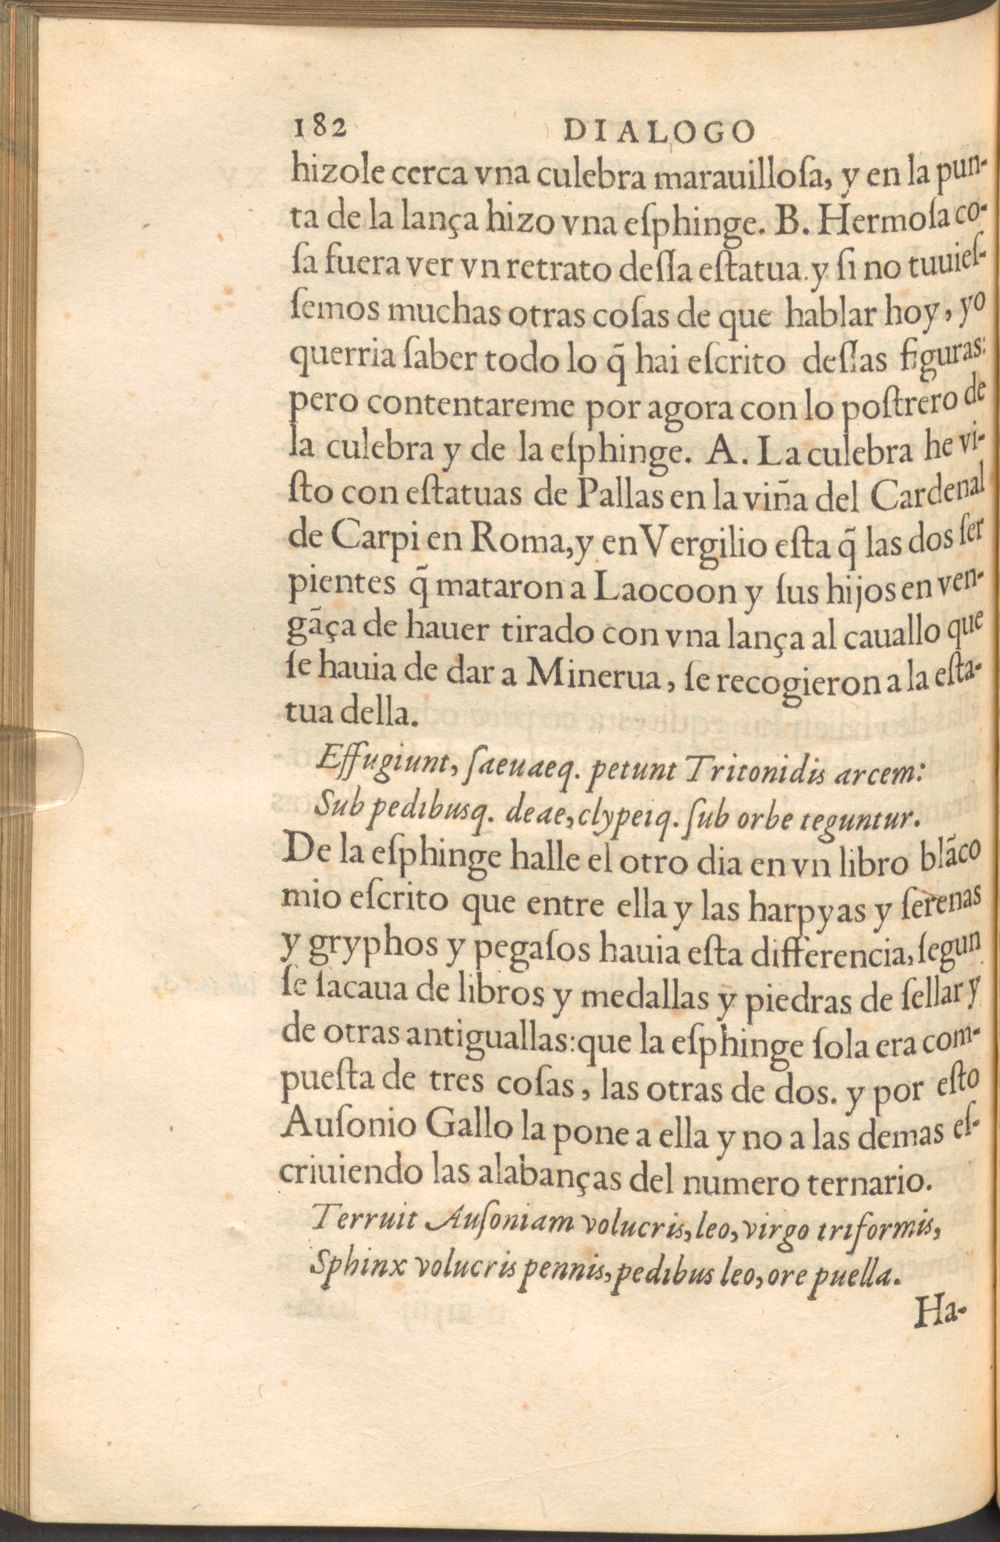 182 DIALOGO
hizole cerca vna culebra marauilloſa, y en la pun-
ta de la lança hizo vna eſphinge. B. Hermoſa co-
ſa fuera ver vn retrato deſſa eſtatua. y ſi no tuuieſ-
ſemos muchas otras coſas de que hablar hoy, yo
querria ſaber todo lo q̃ hai eſcrito deſſas figuras:
pero contentareme por agora con lo poſtrero de
la culebra y de la eſphinge. A. La culebra he vi-
ſto con eſtatuas de Pallas en la viña del Cardenal
de Carpi en Roma, y en Vergilio eſta q̃ las dos ſer
pientes q̃ mataron a Laocoon y ſus hijos en ven-
gãça de hauer tirado con vna lança al cauallo que
ſe hauia de dar a Minerua, ſe recogieron a la eſta-
tua della.
Effugiunt, ſaeuaeq. petunt Tritonidis arcem:
Sub pedibusq. deae, clypeiq. ſub orbe teguntur.
De la eſphinge halle el otro dia en vn libro blãco
mio eſcrito que entre ella y las harpyas y ſerenas
y gryphos y pegaſos hauia eſta differencia, ſegun
ſe ſacaua de libros y medallas y piedras de ſellar y
de otras antiguallas: que la eſphinge ſola era com-
pueſta de tres coſas, las otras de dos. y por eſto
Auſonio Gallo la pone a ella y no a las demas eſ-
criuiendo las alabanças del numero ternario.
Terruit Auſoniam volucris, leo, virgo triformis,
Sphinx volucris pennis, pedibus leo, ore puella.
Ha-